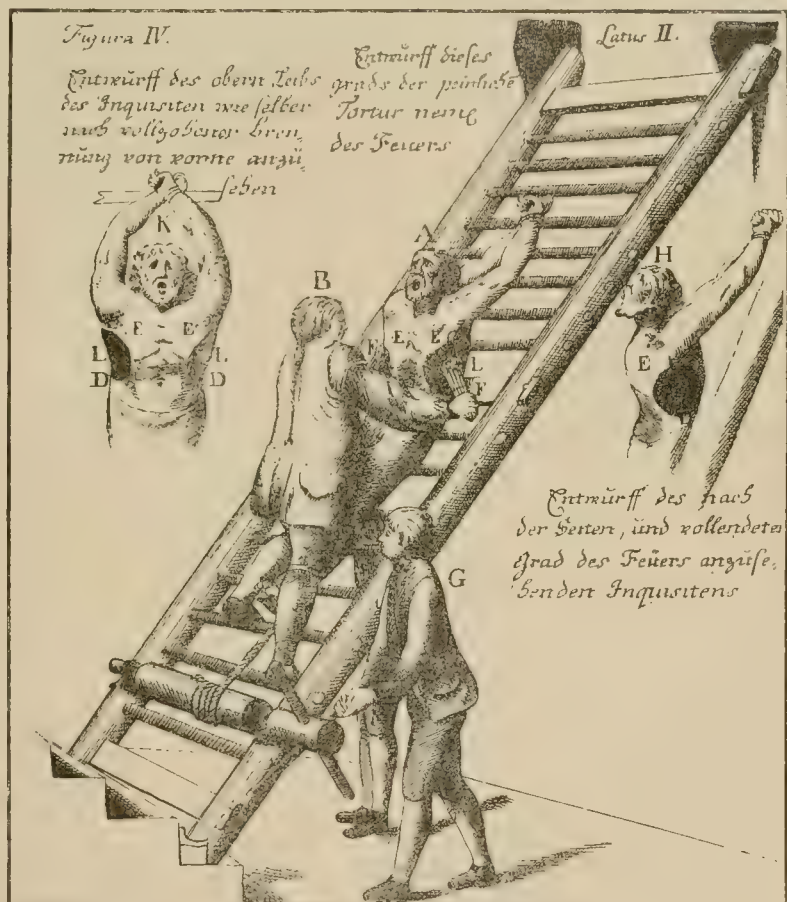 Figura IV.
Entwurff des obern Leibs
des Inquisiten wie selber
nach vollzohener Bren-
nung von vorne anzu-
sehen
Entwurff dieses
grads der peinlichē
Tortur nemc
des Feuers
Latus II.
K
E E
L L
D D
A
B
E E
F
L
F
G
H
E
Entwurff des nach
der Seiten, und vollendeten
Grad des Feuers anzuse-
henden Inquisitens